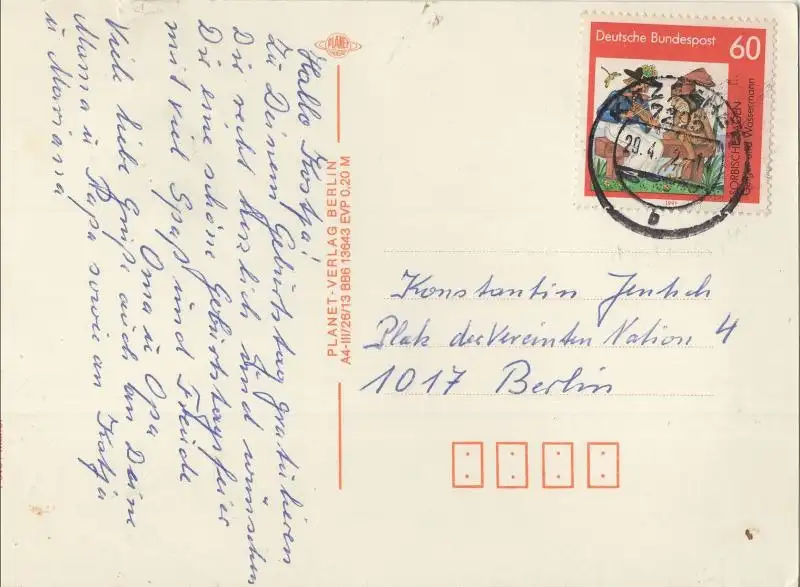 Hallo Kostja!
Zu Deinem Geburtstag gratulieren
Dir recht herzlich und wünschen
Dir eine schöne Geburtstagsfeier
mit viel Spaß und Freude
Oma u Opa
Viele liebe Grüße auch an Deine
Mama u Papa sowie an Katja
u Mariana
PLANET
PLANET-VERLAG BERLIN
A4-III/26/13 BB6 13643 EVP 0,20 M
Deutsche Bundespost
60
SORBISCHE SAGEN
und Wassermann
1991
29.4.
b
Konstantin Jentsch
Platz der Vereinten Nation 4
1017 Berlin